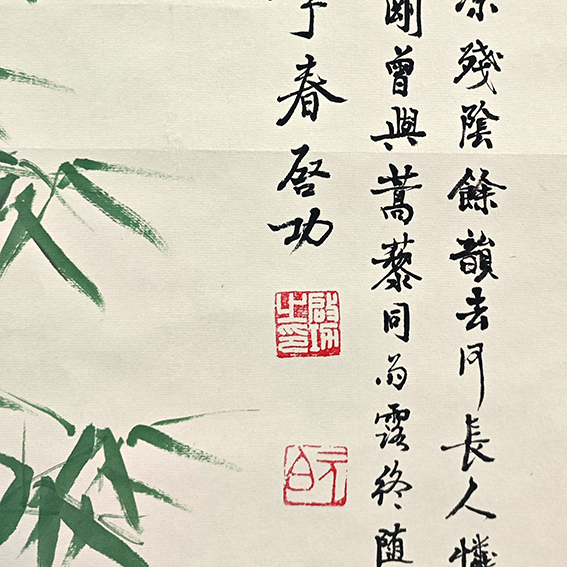 殘陰餘韻去何長人憐
剛曾與蒿藜同雨露終随
春啓功
啓功之印
元白